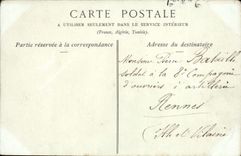 CARTE POSTALE
A UTILISER SEULEMENT DANS LE SERVICE INTÉRIEUR
(France, Algérie, Tunisie).
Partie réservée à la correspondance
Adresse du destinataire
Monsieur Pierre
soldat à la 8e Compagnie
d'ouvriers d'artillerie
Rennes
Ille et Vilaine